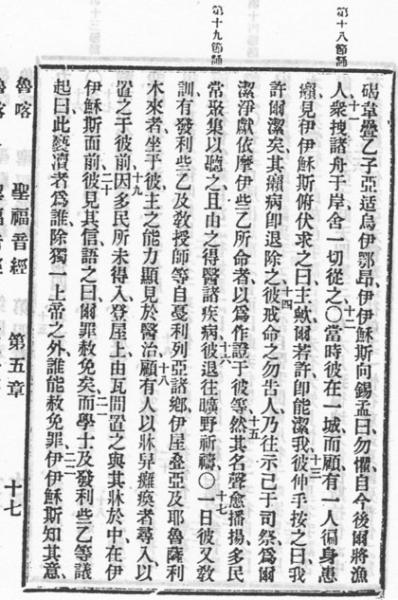 第十八節誦
第十九節誦
碣韋疊乙子亞适烏伊鄂昂伊伊穌斯向錫孟曰勿懼自今後爾將漁
人十一衆拽諸舟于岸舍一切從之〇十二當時彼在一城而顧有一人徧身患
癩見伊伊穌斯俯伏求之曰主歟爾若許卽能潔我十三彼伸手按之曰我
許爾潔矣其癩病卽退除之十四彼戒命之勿吿人乃往示己于司祭爲爾
潔淨獻依摩伊些乙所命者以爲作證于彼等十五然其名聲愈播揚多民
常聚集以聽之且由之得醫諸疾病十六彼退往曠野祈禱〇十七一日彼又敎
訓有發利些乙及敎授師等自戞利列亞諸鄉伊屋疊亞及耶魯薩利
木來者坐于彼主之能力顯見於醫治十八顧有人以牀舁癱瘓者尋入以
置之于彼前十九因多民所未得入登屋上由瓦間置之與其牀於中在伊
伊穌斯面前二十彼見其信語之曰爾罪赦免矣二一而學士及發利些乙等議
起曰此褻瀆者爲誰除獨一上帝之外誰能赦免罪二二伊伊穌斯知其意
魯喀 聖福音經 第五章 十七